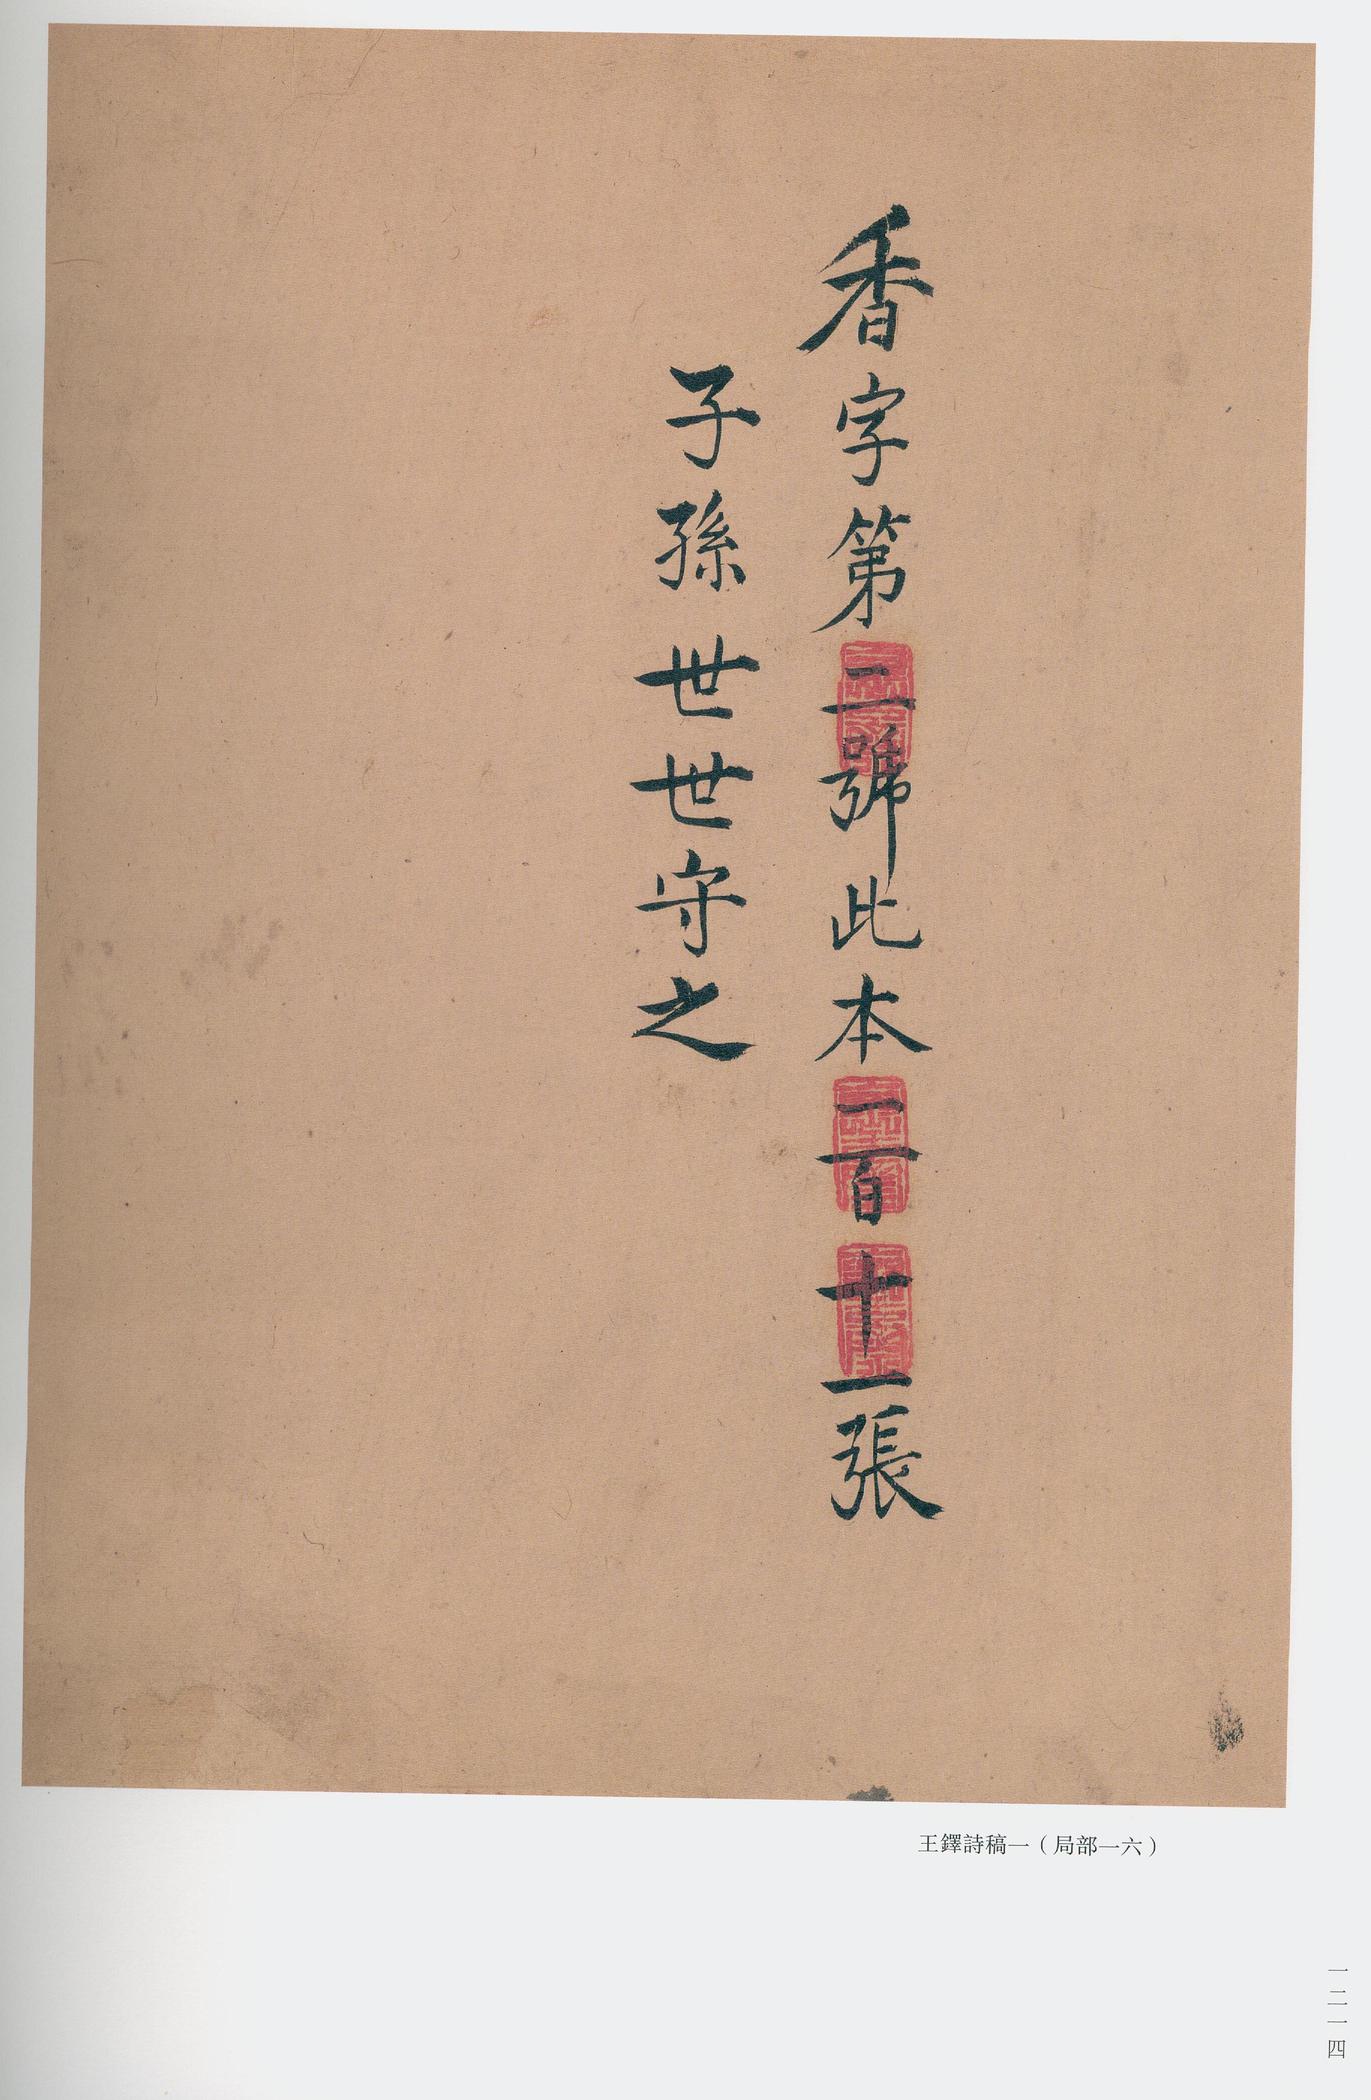 香字第二號此本一百十一張
子孫世世守之
王鐸詩稿一（局部一六）
一二一四